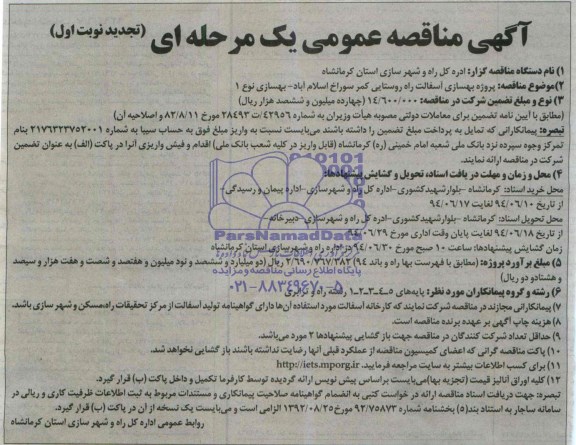 آگهی مناقصه عمومی یک مرحله ای (تجدید نوبت اول)
۱) نام دستگاه مناقصه گزار: ادره کل راه و شهر سازی استان کرمانشاه
۲)موضوع مناقصه: پروژه بهسازی آسفالت راه روستایی کمر سوراخ اسلام آباد- بهسازی نوع ۱
۳) نوع و مبلغ تضمین شرکت در مناقصه: ۱۴/۶۰۰/۰۰۰ (چهارده میلیون و ششصد هزار ریال)
(مطابق با آیین نامه تضمین برای معاملات دولتی مصوبه هیأت وزیران به شماره ۴۲۹۵۶/ت ۲۸۴۹۳ مورخ ۸۲/۸/۱۱ و اصلاحیه آن)
تبصره: پیمانکارانی که تمایل به پرداخت مبلغ تضمین را داشته باشند می‌بایست نسبت به واریز مبلغ فوق به حساب سیبا به شماره ۲۱۷۶۳۲۳۷۵۲۰۰۱ بنام
تمرکز وجوه سپرده نزد بانک ملی شعبه امام خمینی (ره) کرمانشاه (قابل واریز در کلیه شعب بانک ملی) اقدام و فیش واریزی آنرا در پاکت (الف) به عنوان تضمین
شرکت در مناقصه ارائه نمایند.
۴) محل و زمان و مهلت دریافت اسناد، تحویل و گشایش پیشنهادها:
محل خرید اسناد: کرمانشاه -بلوارشهیدکشوری -اداره کل راه و شهرسازی-اداره پیمان و رسیدگی-
از تاریخ ۹۴/۰۶/۱۰ لغایت ۹۴/۰۶/۱۷
محل تحویل اسناد: کرمانشاه -بلوارشهیدکشوری -ادره کل راه و شهرسازی-دبیرخانه
از تاریخ ۹۴/۰۶/۱۸ لغایت پایان وقت اداری مورخ ۹۴/۰۶/۲۹
زمان گشایش پیشنهادها: ساعت ۱۰ صبح مورخ ۹۴/۰۶/۳۰ در اداره راه و شهرسازی استان کرمانشاه
۵) مبلغ برآورد پروژه: (مطابق با فهرست بها راه و باند ۹۴) ۲/۶۹۰/۷۶۷/۳۸۲ ریال (دو میلیارد و ششصد و نود میلیون و هفتصد و شصت و هفت هزار و سیصد
و هشتادو دو ریال)
۶) رشته و گروه پیمانکاران مورد نظر: پایه‌های ۵-۴-۳-۲-۱ رشته راه و ترابری
۷) پیمانکارانی مجازند در مناقصه شرکت نمایند که کارخانه آسفالت مورد استفاده آن‌ها دارای گواهینامه تولید آسفالت از مرکز تحقیقات راه،مسکن و شهر سازی باشد.
۸) هزینه چاپ آگهی بر عهده برنده مناقصه است.
۹) حداقل تعداد شرکت کنندگان در مناقصه جهت باز گشایی پیشنهادها ۲ مورد می‌باشد.
۱۰) پاکت مناقصه گرانی که اعضای کمیسیون مناقصه از عملکرد قبلی آنها رضایت نداشته باشند باز گشایی نخواهد شد.
۱۱) برای کسب اطلاعات بیشتر به سایت مراجعه فرمایید. http://iets.mporg.ir
۱۲) کلیه اوراق آنالیز قیمت (تجزیه بها)می‌بایست براساس پیش نویس ارائه گردیده توسط کارفرما تکمیل و داخل پاکت (ب) قرار گیرد.
تبصره: جهت دریافت اسناد مناقصه ارائه در خواست کتبی به انضمام گواهینامه صلاحیت پیمانکاری و مستندات مربوط به ثبت اطلاعات ظرفیت کاری و ریالی در
سامانه ساجار به استناد بند(۵) بخشنامه شماره ۹۲/۷۵۸۷۳ مورخ ۱۳۹۲/۰۸/۲۵ الزامی است و می‌بایست یک نسخه از آن در پاکت (ب) قرار گیرد.
روابط عمومی اداره کل راه و شهر سازی استان کرمانشاه
ParsNamadData
پایگاه اطلاع رسانی مناقصه و مزایده
۰۲۱-۸۸۳۴۹۶۷۰-۵